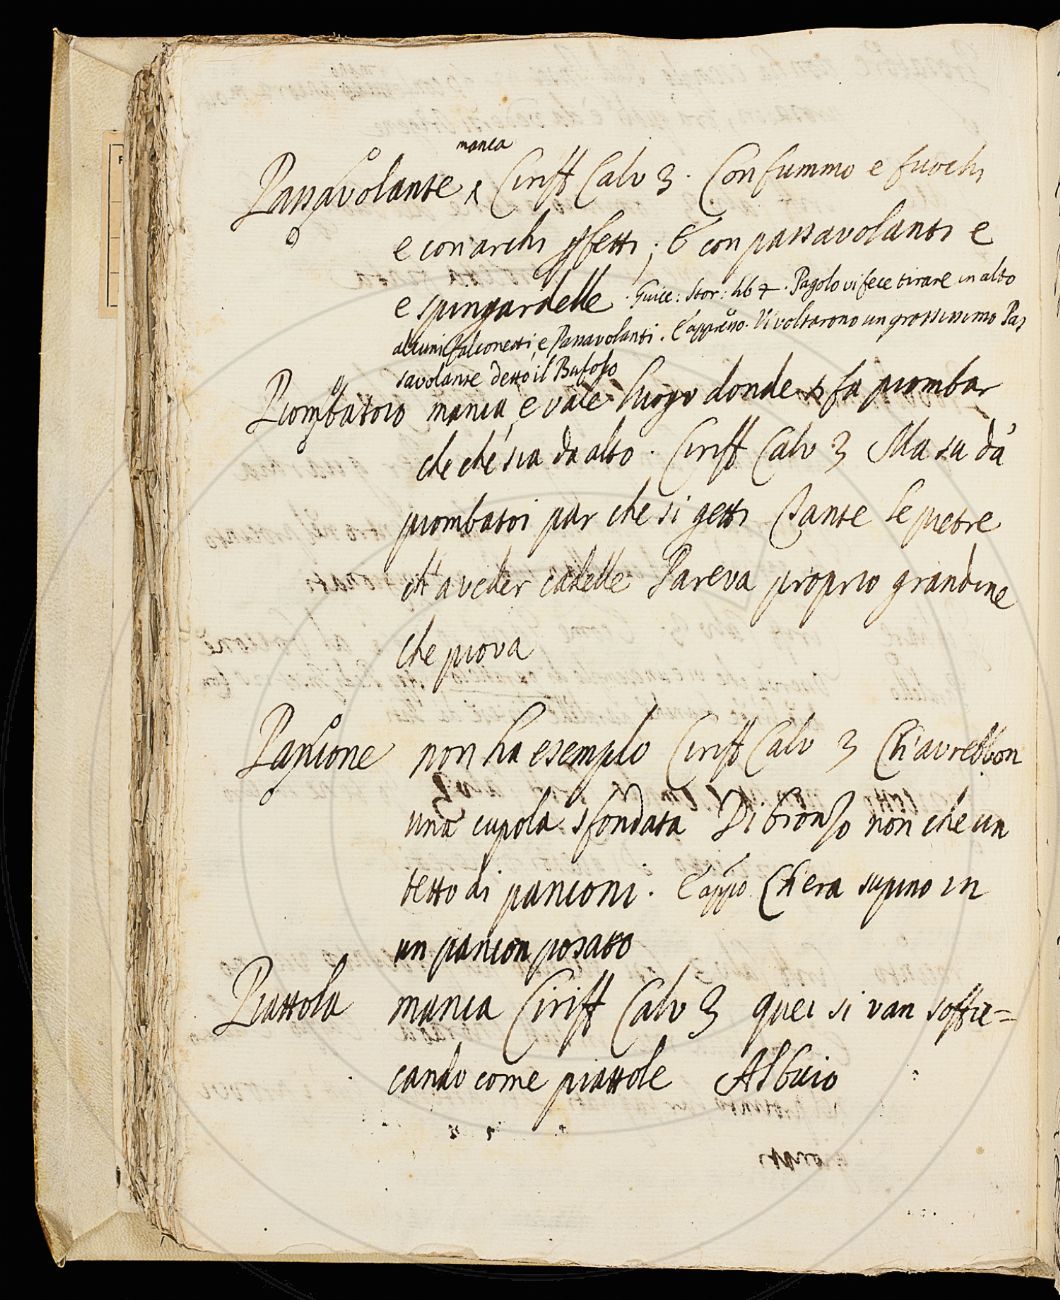 manca
Passavolante ^ Ciriff Calv 3. Con fummo e fuochi
e con archi pfetti; E con passavolanti e
e spingardelle. Guicc: Stor: lib 4. Pagolo vi fece tirare in alto
alcuni falconetti, e Passavolanti. E appresso. Vi voltarono un grossissimo Pas
savolante detto il Bufolo
Piombatoio manca, e vale luogo donde si fa piombar
che che sia da alto. Ciriff Calv 3 Ma su da
piombatoi par che si getti Tante le pietre
ch'a veder cadelle Pareva proprio grandine
che piova
Pancone non ha esemplo Ciriff Calv 3 Ch'avrebbon
una cupola sfondata Di bronzo non che un
tetto di panconi. E appo Ch'era supino in
un pancon posato
Piattola manca Ciriff Calv 3 quei si van soffic=
cando come piattole Al buio